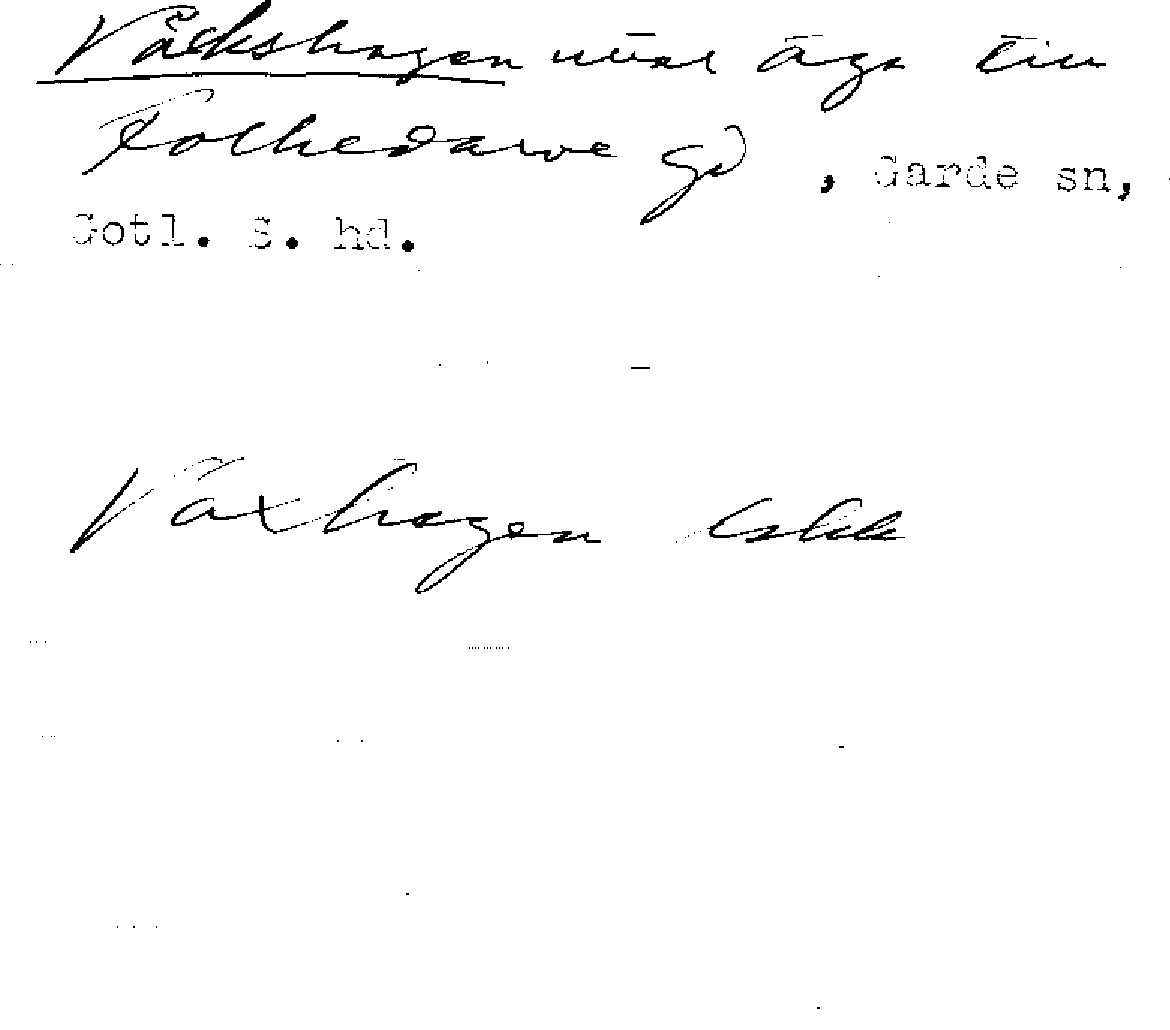 Våckshagen äga till
Folkedarve gd, Garde sn,
Gotl. S. hd.
Växhagen